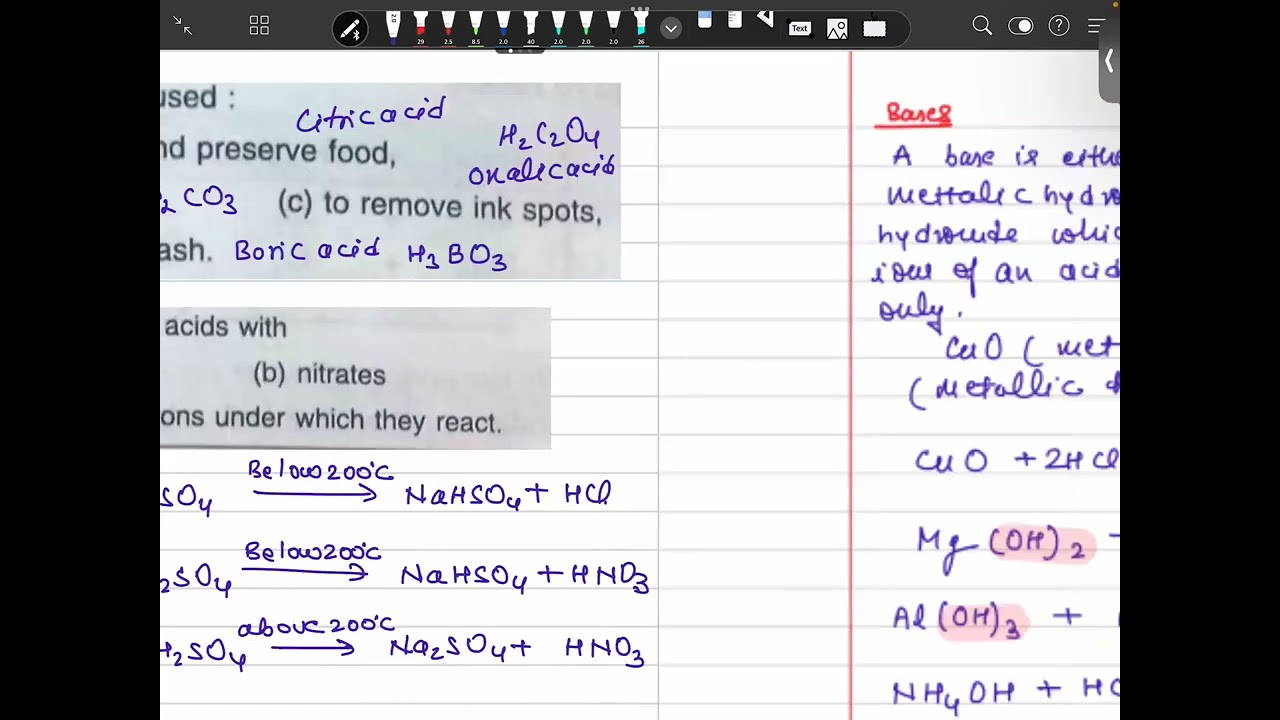 Text
20
29
2.5
8.5
2.0
40
2.0
2.0
2.0
26
used :
Citric acid
H2C2O4
nd preserve food,
oxalic acid
2 CO3 (c) to remove ink spots,
ash. Boric acid H3BO3
acids with
(b) nitrates
ons under which they react.
SO4 Below 200°C → NaHSO4 + HCl
2SO4 Below 200°C → NaHSO4 + HNO3
H2SO4 above 200°C → Na2SO4 + HNO3
Bases
A base is eithe
mettalic hydro
hydroxide whic
ions of an acid
only.
CuO ( met
( metallic
CuO + 2HCl
Mg (OH)2
Al (OH)3 +
NH4OH + HC